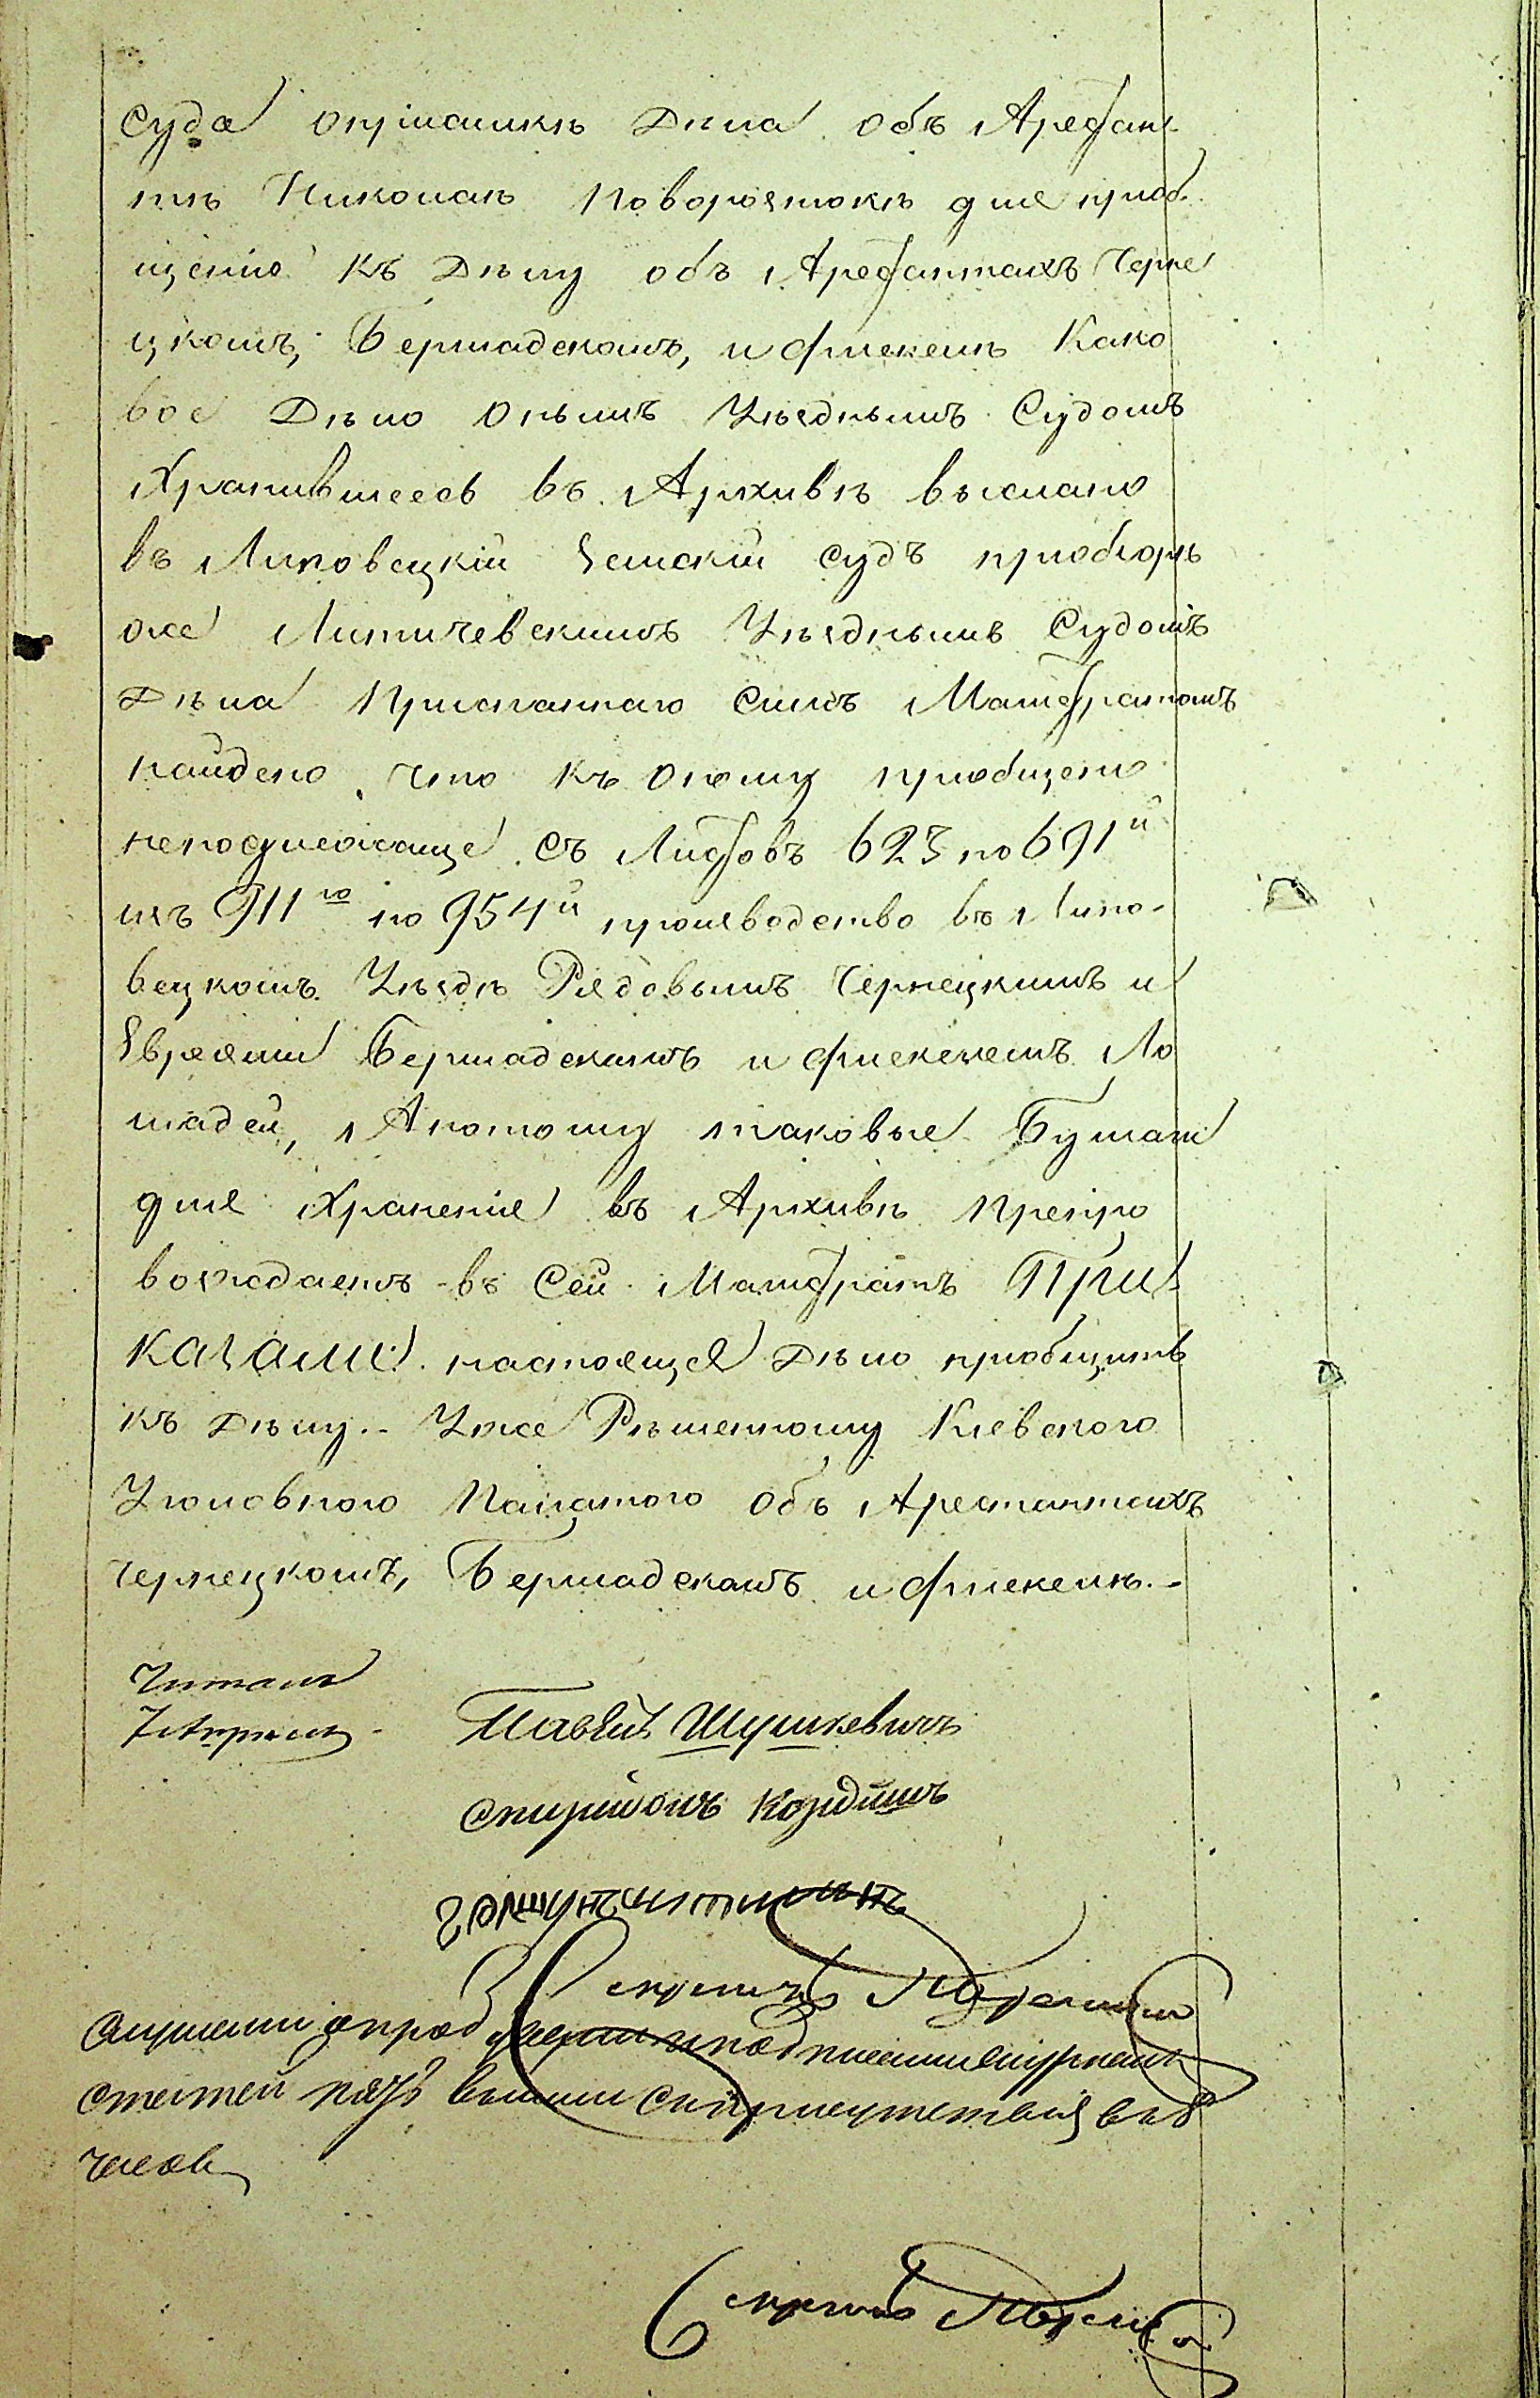 Суда отзыскать Дѣла объ Арестан
тѣ Николаѣ Поворозтокѣ для приоб
щенію къ Дѣлу объ Арестантахъ Черне
цкомъ, Бершадскомъ, и Фиекелѣ Како
вое Дѣло онымъ Уѣзднымъ Судомъ
Хранившееся въ Архивѣ выслано
въ Липовецкій Земскій судъ приоборѣ
оже Литичевскимъ Уѣзднымъ Судомъ
Дѣла Присланнаго симъ Магистратомъ
найдено, что къ оному приобщено
неподлежаще съ Листовъ 623 по 691й
изъ 911го по 954й производство въ Липо-
вецкомъ Уѣздѣ Рядовымъ Чернецкимъ и
Евреями Бершадскимъ и Фиекелемъ Ло
шадей, Апотому таковые Бумаги
для Храненія въ Архивѣ Препро
вождаетъ въ Сей Магистратъ При
казали: настоящее Дѣло приобщить
къ Дѣлу.- Уже Рѣшенному Кіевского
Уголовного Палатого Объ Арестантахъ
Чернецкомъ, Бершадскомъ и Фиекелѣ.-
Читалъ
Павелъ Шушкевичъ
Спиридонъ
Секретарь
Слушали
статей выишли сприсутствія въ
часов
Секретарь